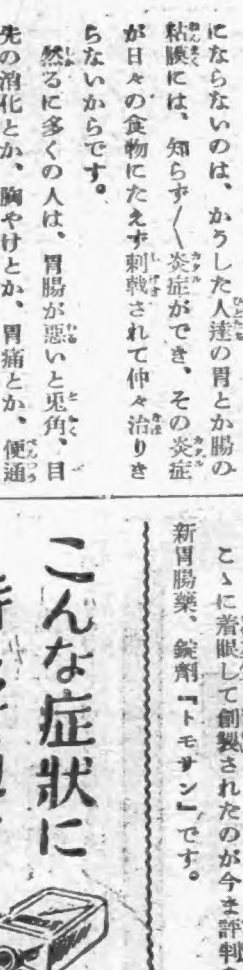 にならないのは、かうした人達の胃とか腸の
粘膜には、知らず〳〵炎症ができ、その炎症
が日々の食物にたえず刺戟されて仲々治りき
らないからです。
然るに多くの人は、胃腸が悪いと兎角、目
先の消化とか、胸やけとか、胃痛とか、便通
こゝに着眼して創製されたのが今ま評判
新胃腸藥、錠劑『トモサン』です。
こんな症狀に